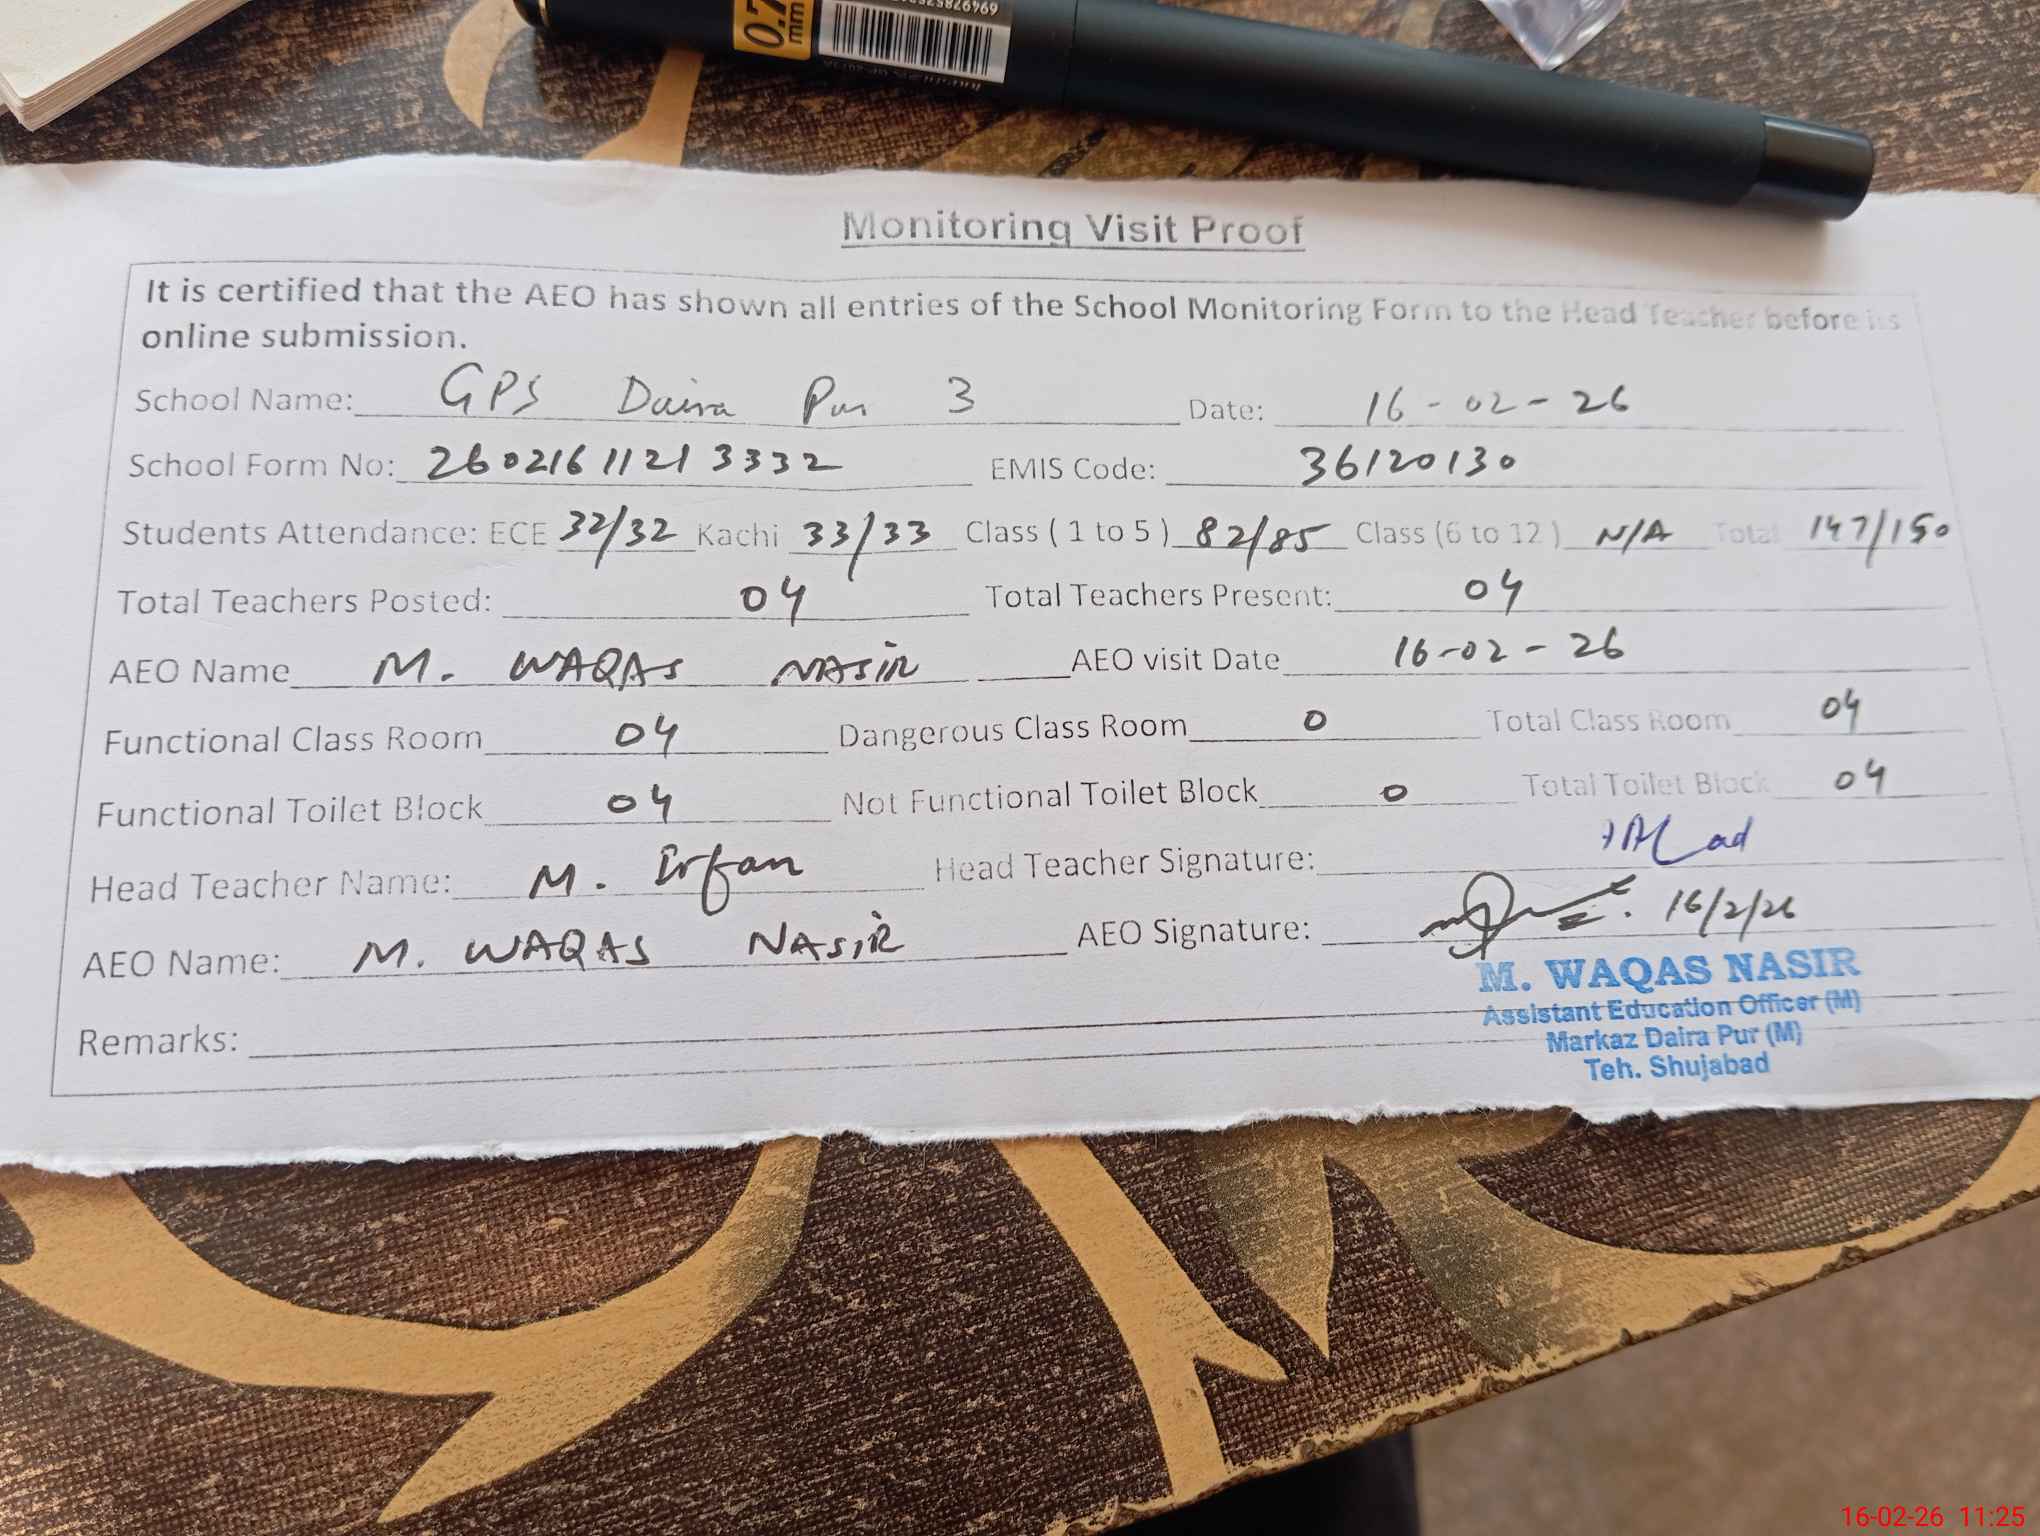 0.7 mm
Monitoring Visit Proof
It is certified that the AEO has shown all entries of the School Monitoring Form to the Head Teacher before its
online submission.
School Name: GPS Daira Pur 3 Date: 16-02-26
School Form No: 2602161121 3332 EMIS Code: 36120130
Students Attendance: ECE 32/32 Kachi 33/33 Class ( 1 to 5 ) 82/85 Class (6 to 12 ) N/A Total 147/150
Total Teachers Posted: 04 Total Teachers Present: 04
AEO Name M. WAQAS NASIR AEO visit Date 16-02-26
Functional Class Room 04 Dangerous Class Room 0 Total Class Room 04
Functional Toilet Block 04 Not Functional Toilet Block 0 Total Toilet Block 04
Head Teacher Name: M. Irfan Head Teacher Signature:
AEO Name: M. WAQAS NASIR AEO Signature: 16/2/26
M. WAQAS NASIR
Assistant Education Officer (M)
Markaz Daira Pur (M)
Teh. Shujabad
Remarks:
16-02-26 11:25